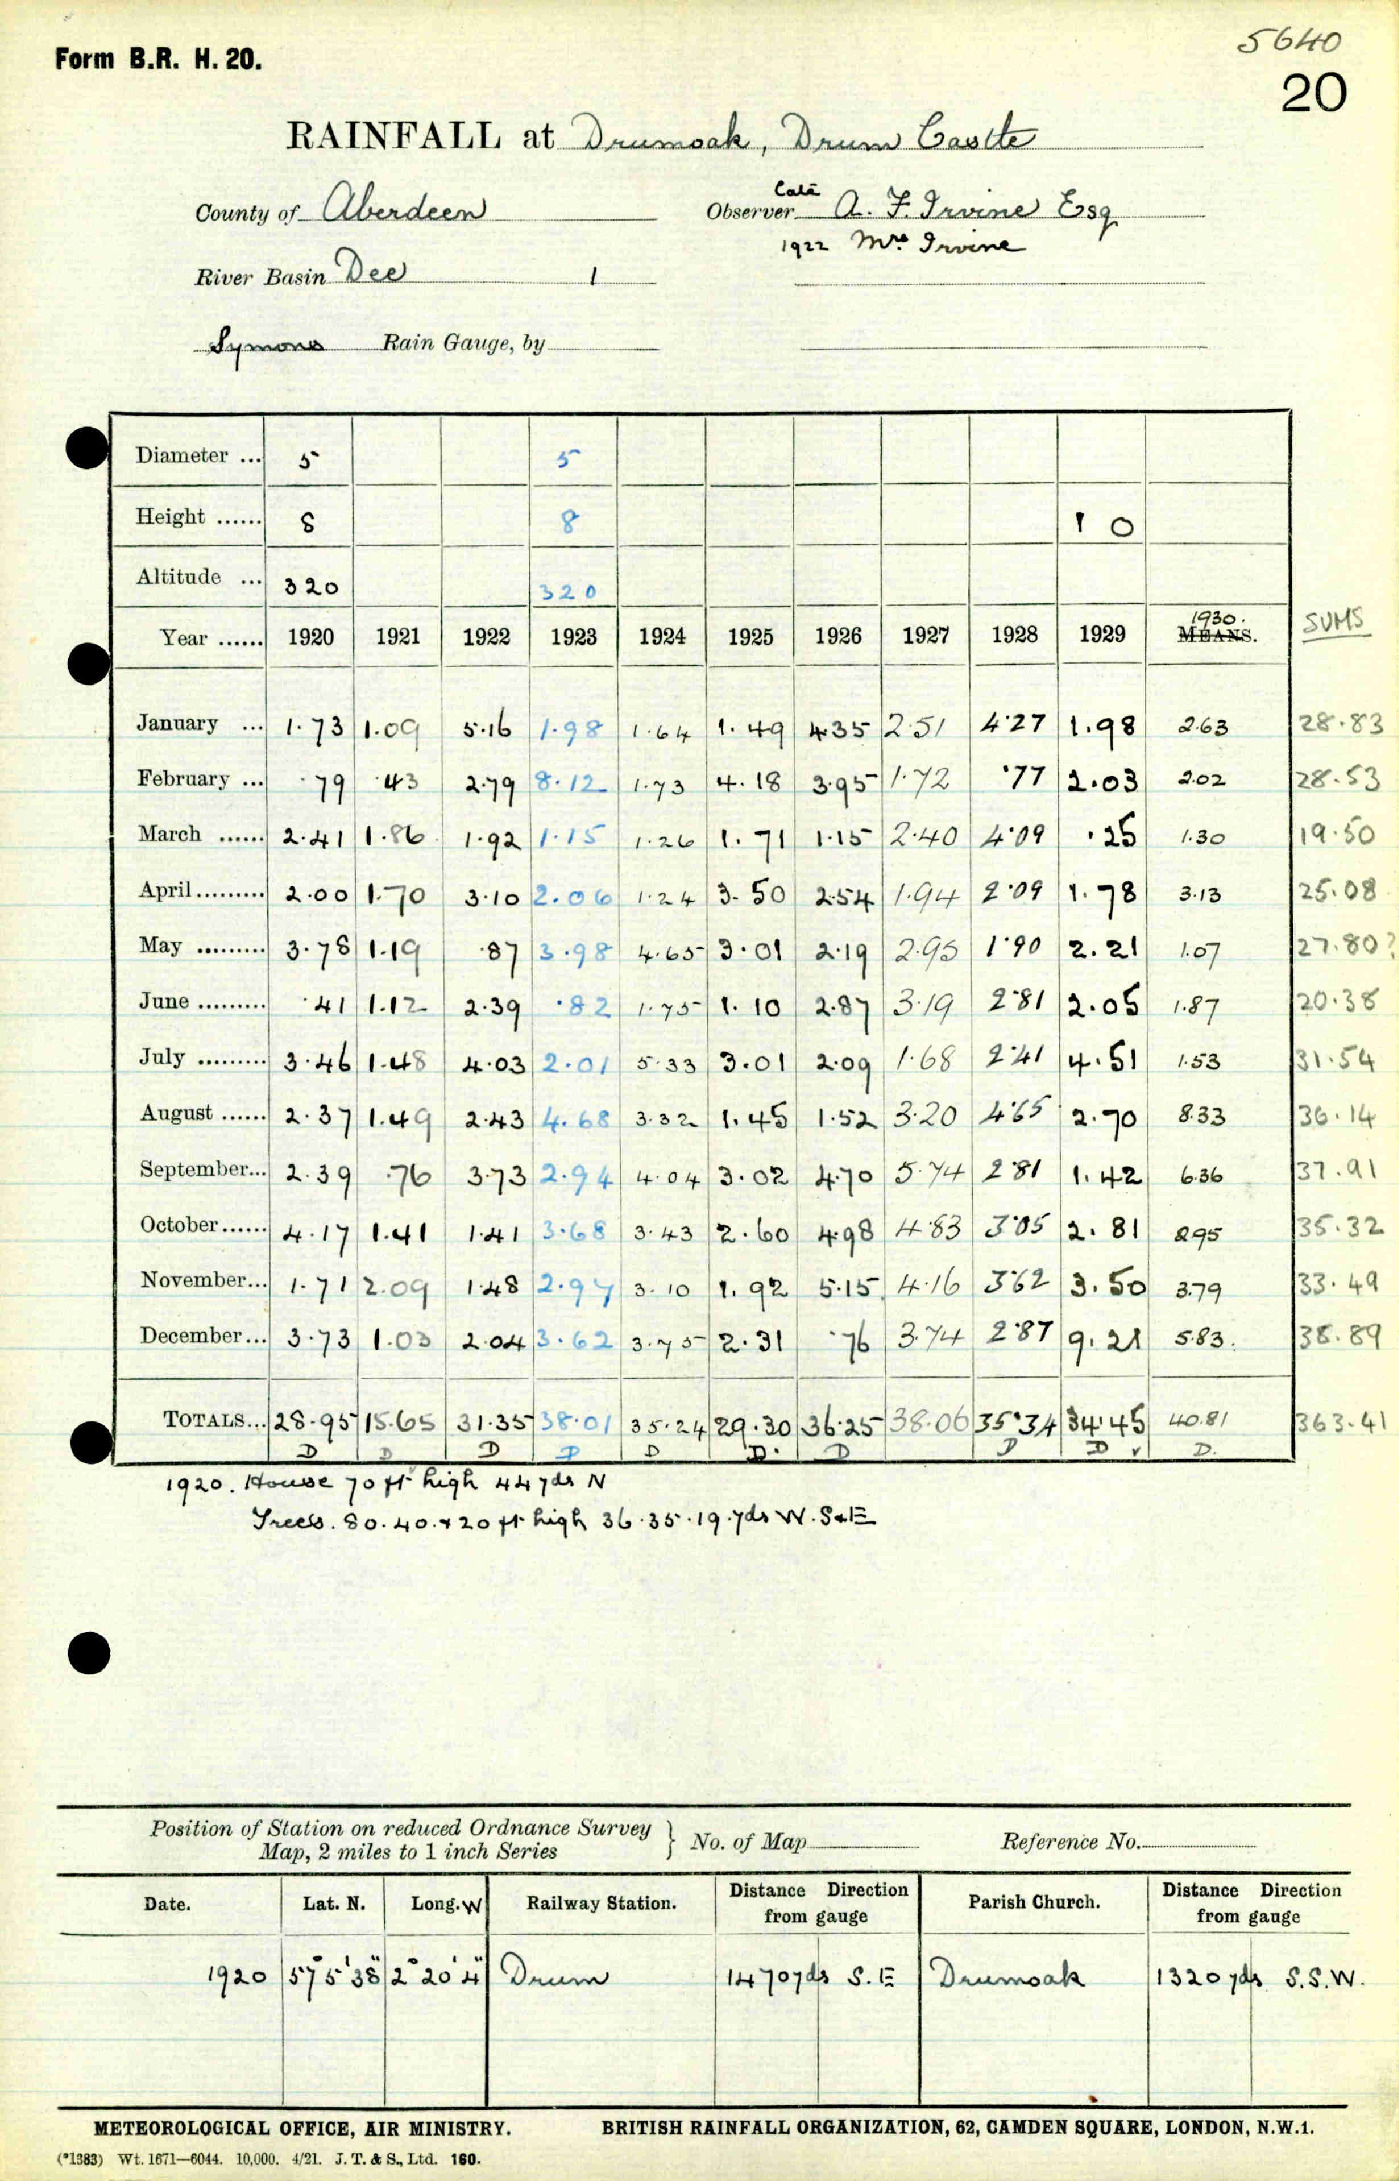 5640
Form B.R. H. 20.
20
RAINFALL at Drumoak, Drum Castle
County of Aberdeen Observer A. F. Irvine Esq
1922 Mrs Irvine
River Basin Dee 1
Symons Rain Gauge, by
Diameter ... 5 5
Height ...... 8 8 1 0
Altitude ... 320 320
Year ...... 1920 1921 1922 1923 1924 1925 1926 1927 1928 1929 1930. MEANS. SUMS
January ... 1.73 1.09 5.16 1.98 1.64 1.49 4.35 2.51 4.27 1.98 2.63 28.83
February ... .79 .43 2.79 8.12 1.73 4.18 3.95 1.72 .77 2.03 2.02 28.53
March ...... 2.41 1.86 1.92 1.15 1.26 1.71 1.15 2.40 4.09 .25 1.30 19.50
April......... 2.00 1.70 3.10 2.06 1.24 3.50 2.54 1.94 2.09 1.78 3.13 25.08
May ......... 3.78 1.19 .87 3.98 4.65 3.01 2.19 2.95 1.90 2.21 1.07 27.80?
June ......... .41 1.12 2.39 .82 1.75 1.10 2.87 3.19 2.81 2.05 1.87 20.38
July ......... 3.46 1.48 4.03 2.01 5.33 3.01 2.09 1.68 2.41 4.51 1.53 31.54
August ...... 2.37 1.49 2.43 4.68 3.32 1.45 1.52 3.20 4.65 2.70 8.33 36.14
September... 2.39 .76 3.73 2.94 4.04 3.02 4.70 5.74 2.81 1.42 6.36 37.91
October...... 4.17 1.41 1.41 3.68 3.43 2.60 4.98 4.83 3.05 2.81 2.95 35.32
November... 1.71 2.09 1.48 2.97 3.10 1.92 5.15 4.16 3.62 3.50 3.79 33.49
December... 3.73 1.03 2.04 3.62 3.75 2.31 .76 3.74 2.87 9.21 5.83. 38.89
TOTALS... 28.95 15.65 31.35 38.01 35.24 29.30 36.25 38.06 35.34 34.45 40.81 363.41
D D D D D D. D D D v D.
1920. House 70 ft high 44 yds N
Trees. 80.40.+20 ft high 36.35.19.yds W.S+E
Position of Station on reduced Ordnance Survey Map, 2 miles to 1 inch Series } No. of Map Reference No.
Date. Lat. N. Long. W Railway Station. Distance Direction from gauge Parish Church. Distance Direction from gauge
1920 57° 5' 38" 2° 20' 4" Drum 1470 yds S.E Drumoak 1320 yds S.S.W.
METEOROLOGICAL OFFICE, AIR MINISTRY. BRITISH RAINFALL ORGANIZATION, 62, CAMDEN SQUARE, LONDON, N.W.1.
(*1383) Wt. 1671—6044. 10,000. 4/21. J. T. & S., Ltd. 160.